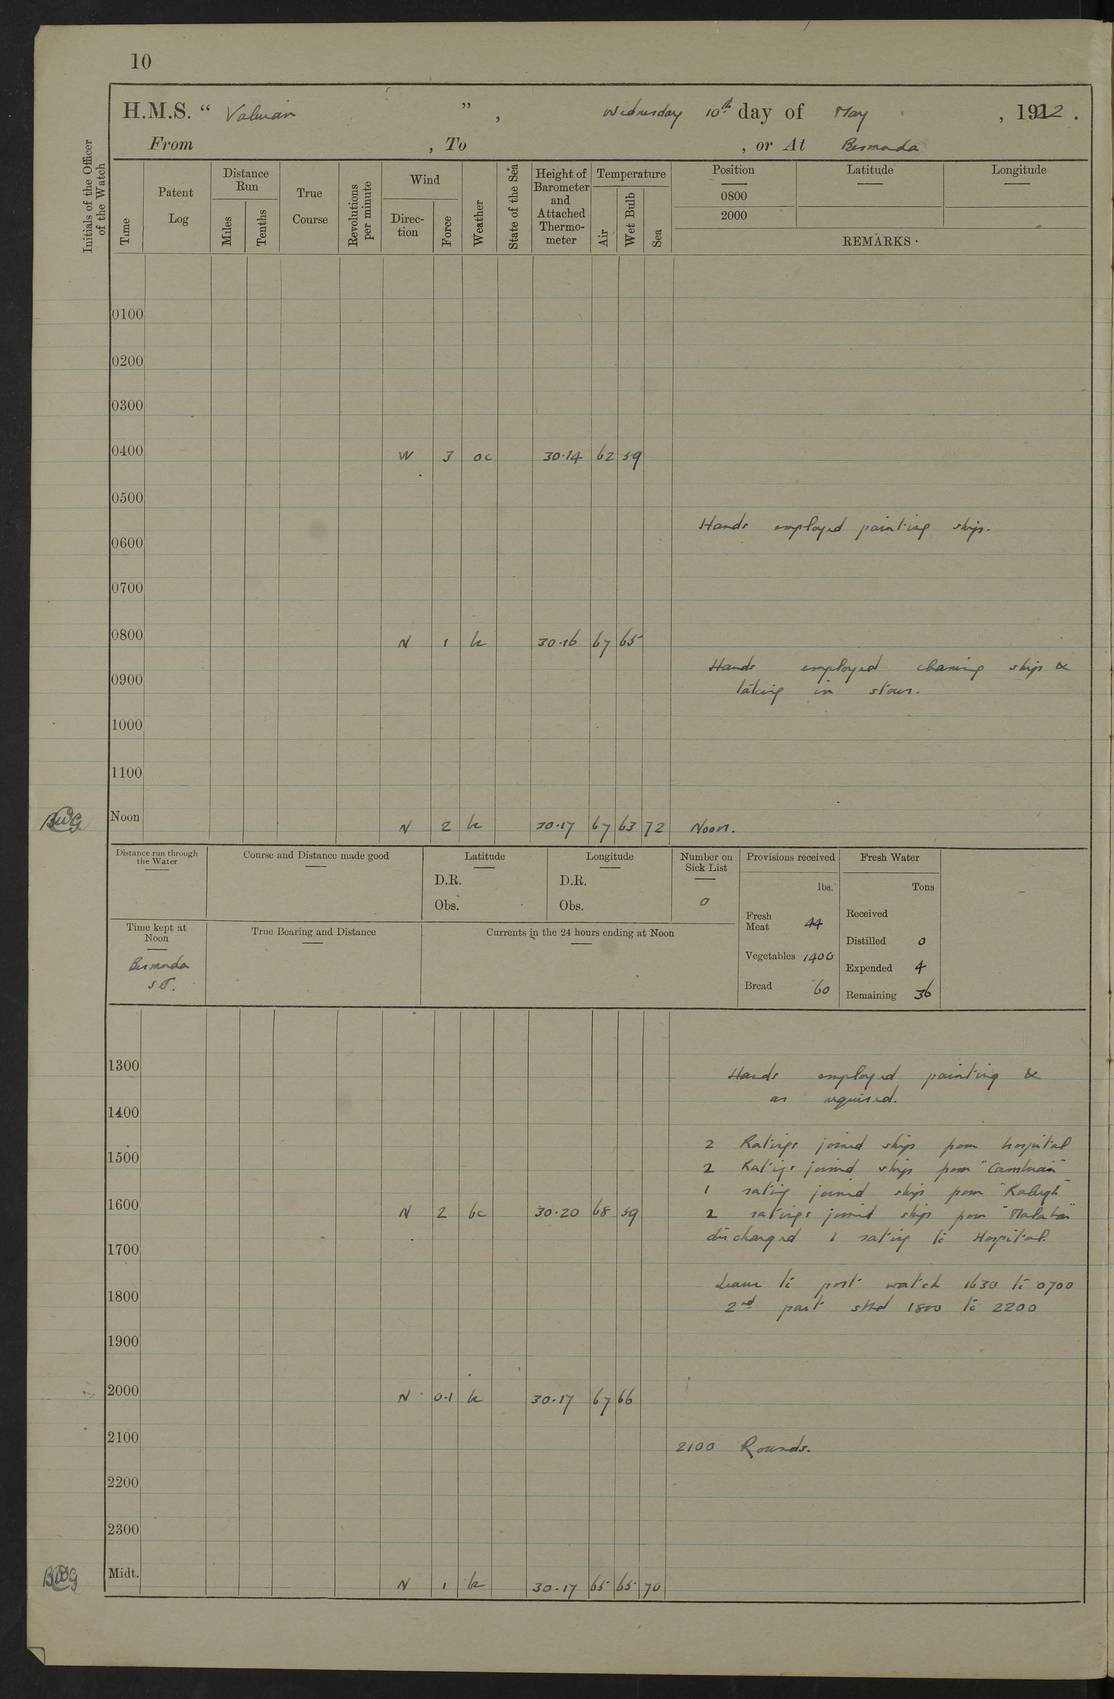 10
H.M.S. " Valerian ", Wednesday 10th day of May, 1922.
From , To , or At Bermuda
Initials of the Officer of the Watch
Time
Patent Log
Distance Run
Miles
Tenths
True Course
Revolutions per minute
Wind
Direc-tion
Force
Weather
State of the Sea
Height of Barometer and Attached Thermo-meter
Temperature
Air
Wet Bulb
Sea
Position
Latitude
Longitude
0800
2000
REMARKS.
0100
0200
0300
0400 W 3 oc 30.14 62 59
0500
Hands employed painting ship.
0600
0700
0800 N 1 bc 30.16 67 65
Hands employed cleaning ship &
0900
taking in stores.
1000
1100
Noon N 2 bc 30.17 67 63 72 Noon.
Distance run through the Water
Course and Distance made good
Latitude
D.R.
Obs.
Longitude
D.R.
Obs.
Number on Sick List
0
Provisions received
lbs.
Fresh Meat 44
Vegetables 1400
Bread 60
Fresh Water
Tons
Received
Distilled 0
Expended 4
Remaining 36
Time kept at Noon
Bermuda
S.T.
True Bearing and Distance
Currents in the 24 hours ending at Noon
1300 Hands employed painting &
as required.
1400
2 Ratings joined ship from hospital
1500
2 Ratings joined ship from "Cambrian"
1 rating joined ship from "Raleigh"
1600 N 2 bc 30.20 68 59 2 ratings joined ship from "Malabar"
discharged 1 rating to Hospital.
1700
Leave to port watch 1630 to 0700
1800
2nd part stbd 1800 to 2200
1900
2000 N 0-1 bc 30.17 67 66
2100 2100 Rounds.
2200
2300
Midt. N 1 bc 30.17 65 65 70